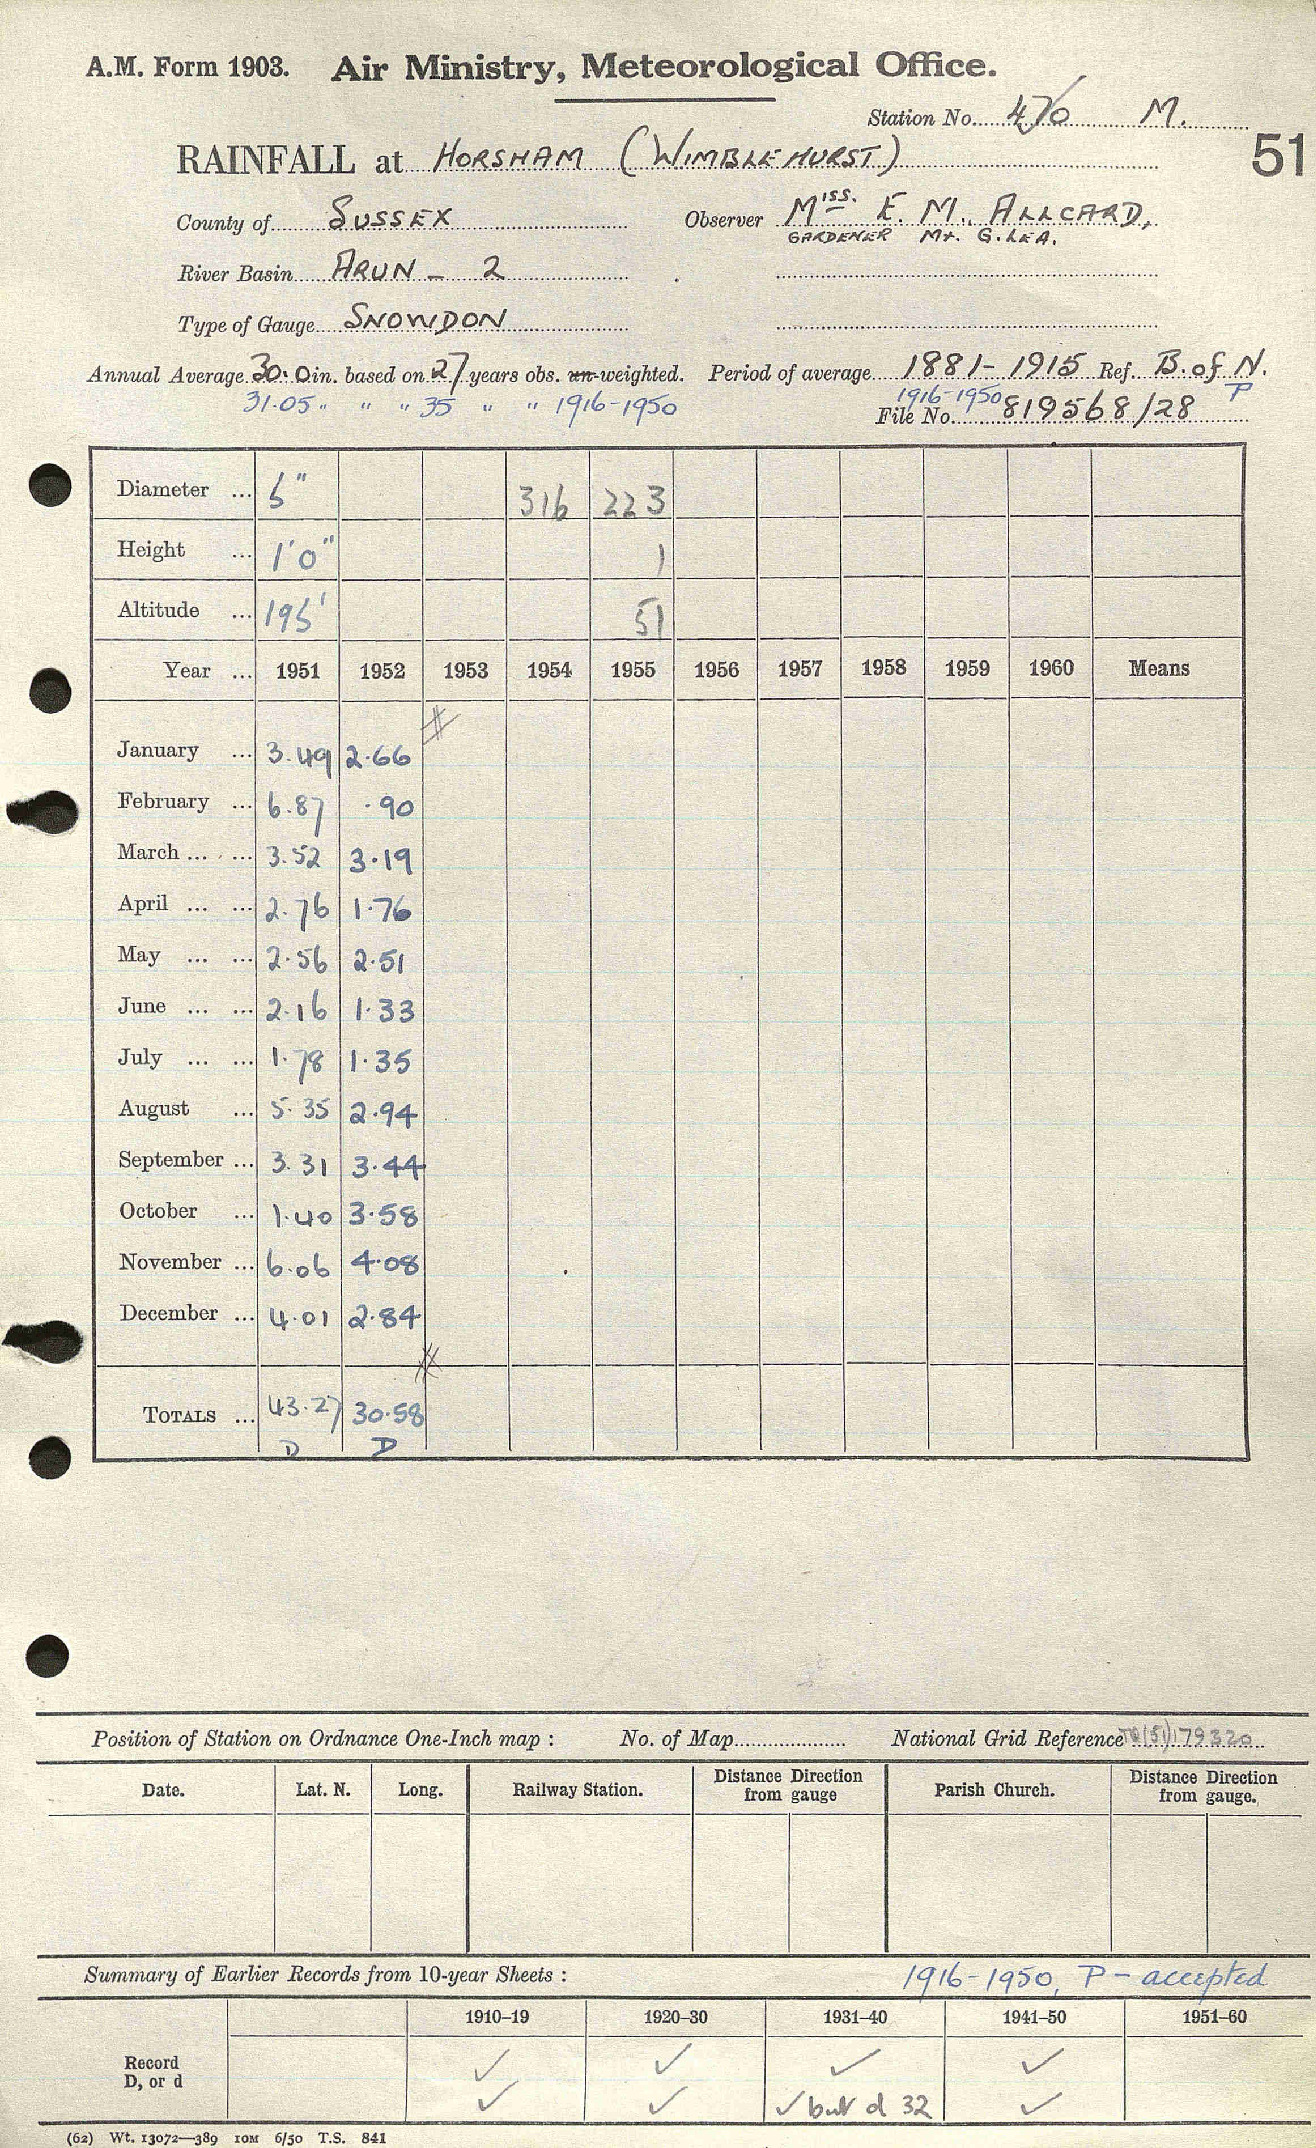 A.M. Form 1903. Air Ministry, Meteorological Office.
Station No. 470 M.
51
RAINFALL at HORSHAM (WIMBLEHURST)
County of SUSSEX Observer Miss. E. M. ALLCARD,
GARDENER Mr. G. LEA.
River Basin ARUN - 2
Type of Gauge SNOWDON
Annual Average 30.0 in. based on 27 years obs. un-weighted. Period of average 1881-1915 Ref. B. of N.
31.05 " " " 35 " " 1916-1950 1916-1950 P
File No. 819568/28
Diameter ... 5" 316 223
Height ... 1'0" 1
Altitude ... 195' 51
Year ... 1951 1952 1953 1954 1955 1956 1957 1958 1959 1960 Means
January ... 3.49 2.66
February ... 6.87 .90
March ... ... 3.52 3.19
April ... ... 2.76 1.76
May ... ... 2.56 2.51
June ... ... 2.16 1.33
July ... ... 1.78 1.35
August ... 5.35 2.94
September ... 3.31 3.44
October ... 1.40 3.58
November ... 6.06 4.08
December ... 4.01 2.84
TOTALS ... 43.27 30.58
D D
Position of Station on Ordnance One-Inch map : No. of Map National Grid Reference TQ(51)179320
Date. Lat. N. Long. Railway Station. Distance Direction from gauge Parish Church. Distance Direction from gauge.
Summary of Earlier Records from 10-year Sheets : 1916-1950, P - accepted
1910-19 1920-30 1931-40 1941-50 1951-60
Record ✓ ✓ ✓ ✓
D, or d ✓ ✓ ✓ but d 32 ✓
(62) Wt. 13072—389 10M 6/50 T.S. 841